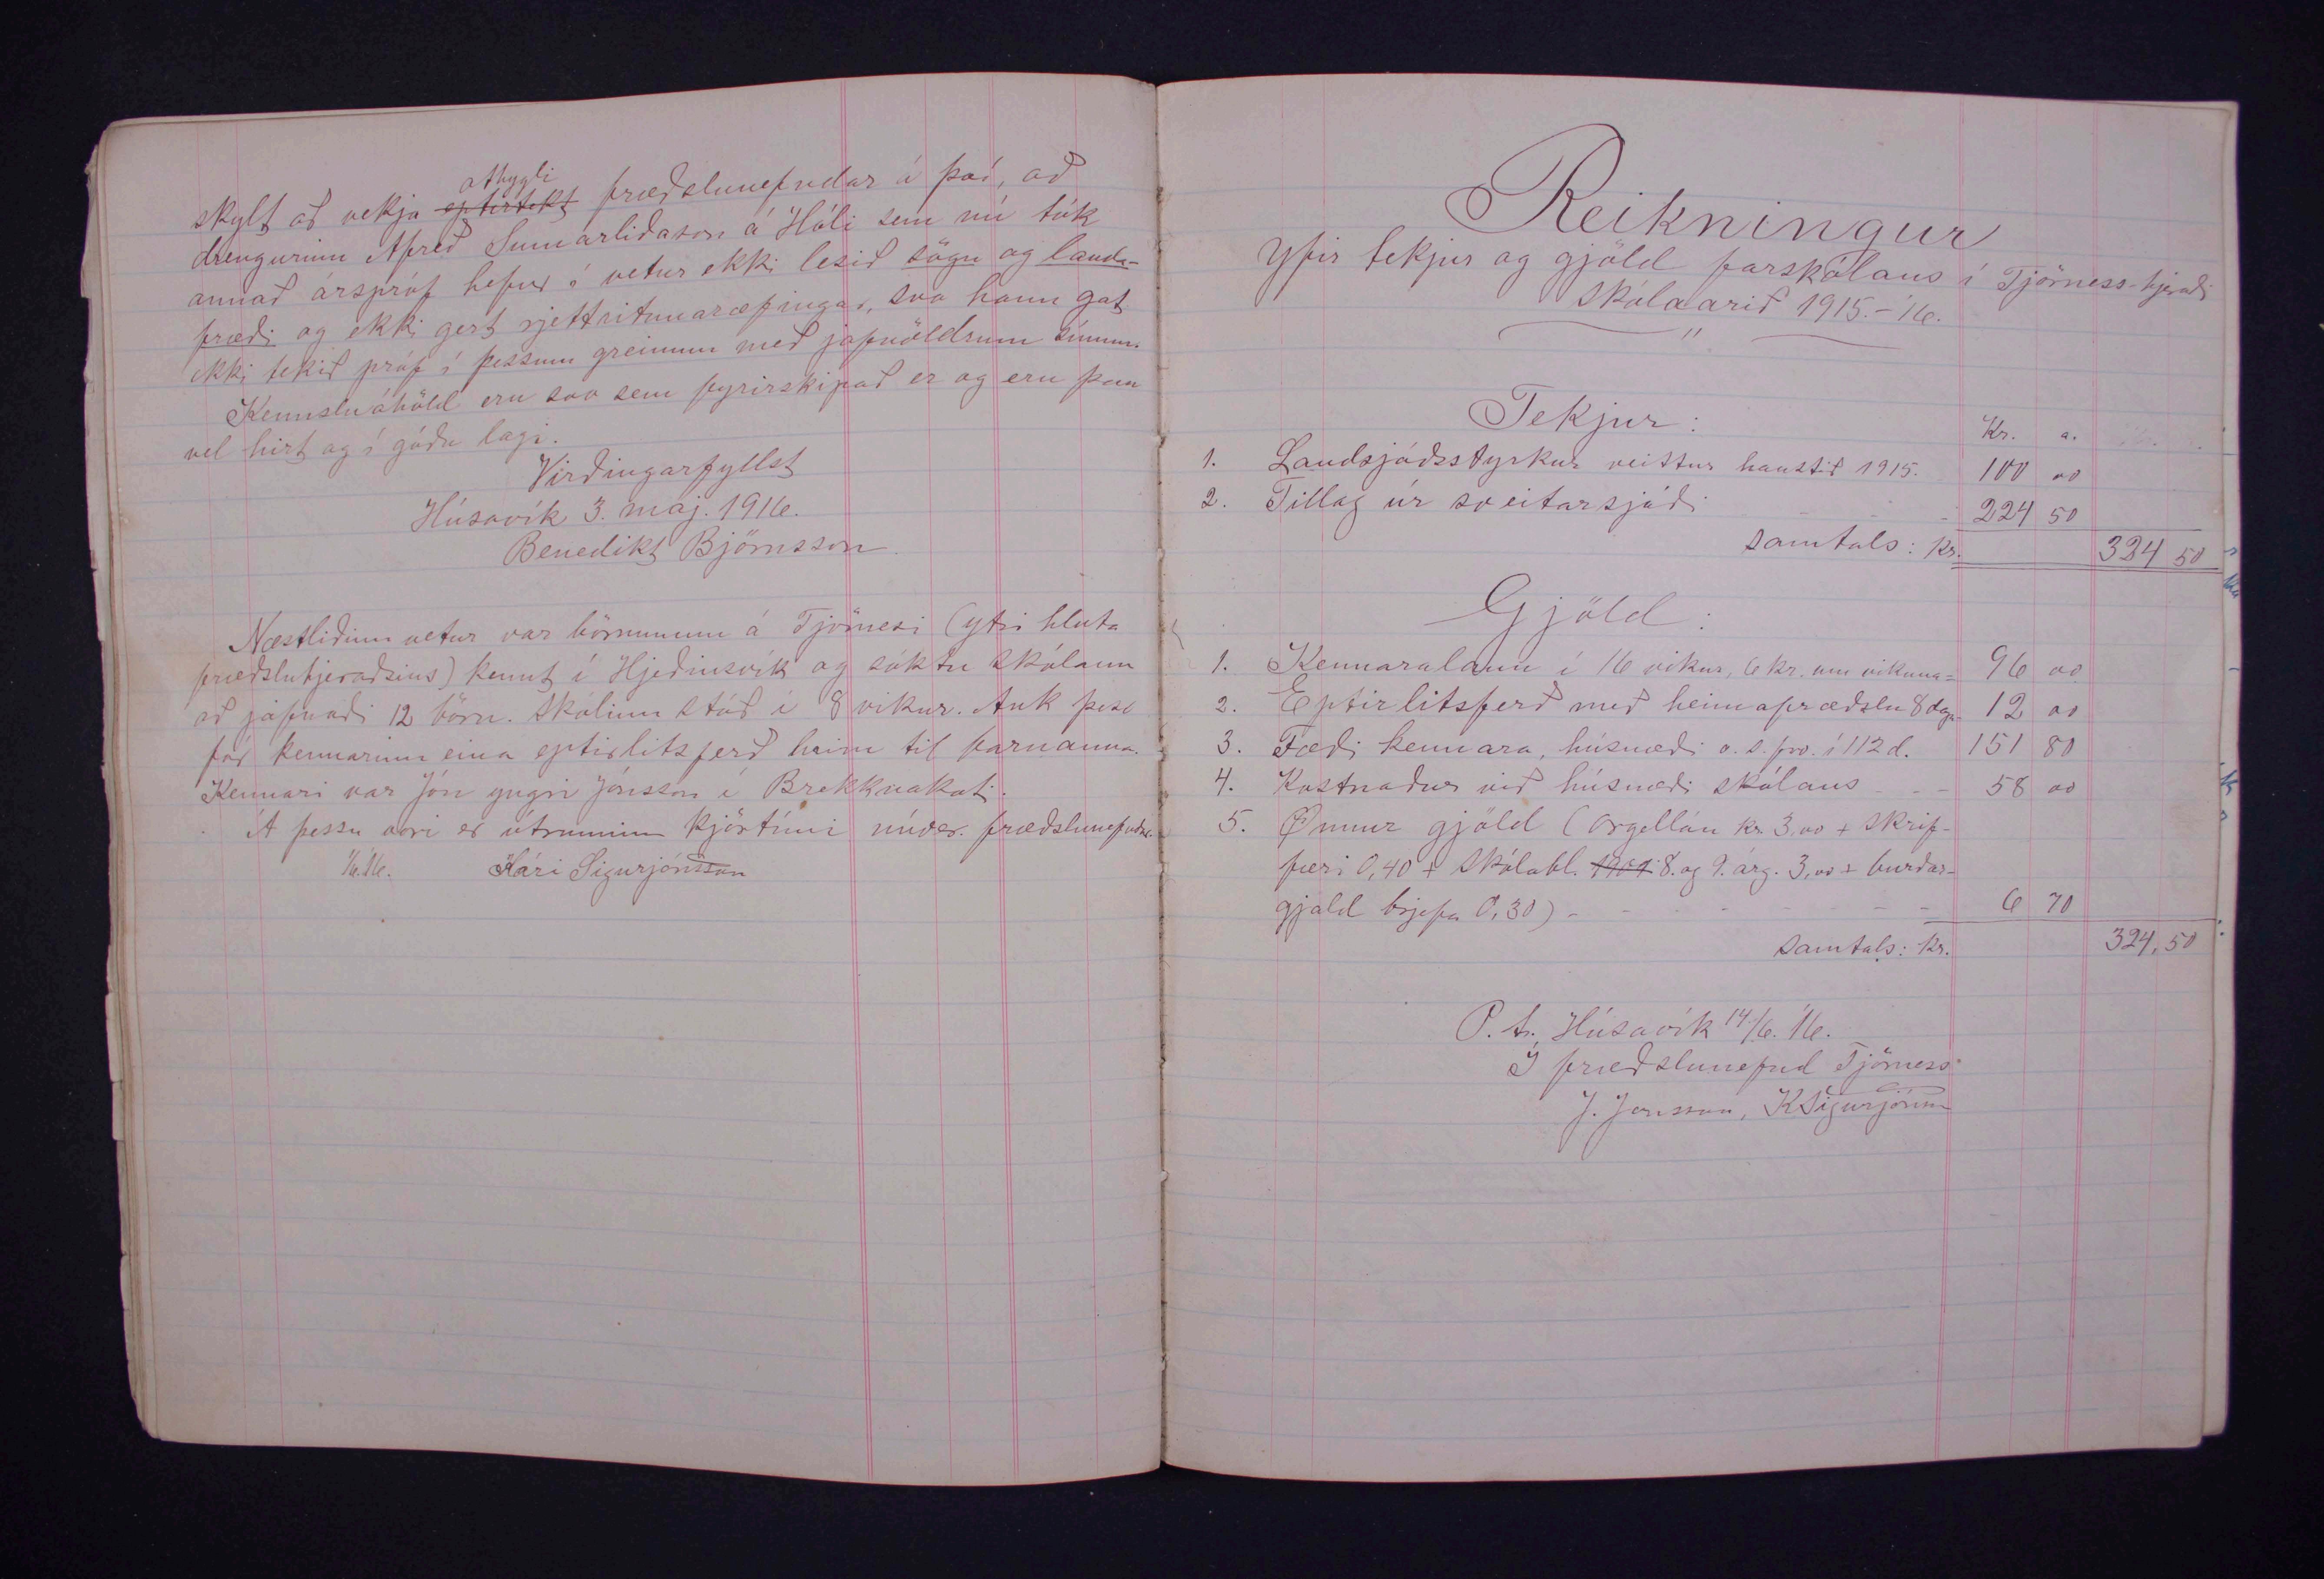 skylt að vekja eptirtekt athygli fræðslunefndar á því, að
drengurinn Afreð Sumarliðason á Hóli sem nú tók
annað árspróf hefur í vetur ekki lesið sögu og landa-
fræði og ekki gert rjettritunaræfingar, svo hann gat
ekki tekið próf í þessum greinum með jafnöldrum sínum.
Kennsluáhöld eru svo sem fyrirskipað er og eru þau
vel hirt og í góðu lagi.
Virðingarfyllst
Húsavík 3. maj. 1916.
Benedikt Björnsson.
Næstliðinn vetur var börnunum á Tjörnesi (ytri hluta
fræðsluhjeraðsins) kennt í Hjeðinsvík og sóktu skólann
að jafnaði 12 börn. Skólinn stóð í 8 vikur. Auk þess
fór kennarinn eina eptirlitsferð heim til barnanna.
Kennari var Jón yngri Jónsson í Brekknakoti.
Á þessu vori er útrunninn kjörtími núver. fræðslunefndar.
Kári Sigurjónsson
Reikningur
Yfir tekjur og gjöld farskólans í Tjörness-hjeraði
skólaarið 1915.-'16.
"
Tekjur:
Kr. a.
1. Landsjóðsstyrkur veittur haustið 1915. 100 00
2. Tillag úr sveitarsjóði - - - 224 50
Samtals: Kr. 324 50
Gjöld:
1. Kennaralaun í 16 vikur, 6 kr. um vikuna= 96 00
2. Eptirlitsferð með heimafræðslu 8 daga 12 00
3. Fæði kennara, húsnæði o. s. frv. í 112 d. 151 80
4. Kostnaður við húsnæði skólans - - - 58 00
5. Önnur gjöld (Orgellán kr. 3,00 + Skrif-
færi 0,40 + Skólabl. 8. og 9. árg. 3,00 + burðar-
gjald brjefa 0,30) - - - - - - - 6 70
Samtals: Kr. 324,50
P. t. Húsavík 14/6. '16.
Í fræðslunefnd Tjörness
J. Jónsson, KSigurjónsson